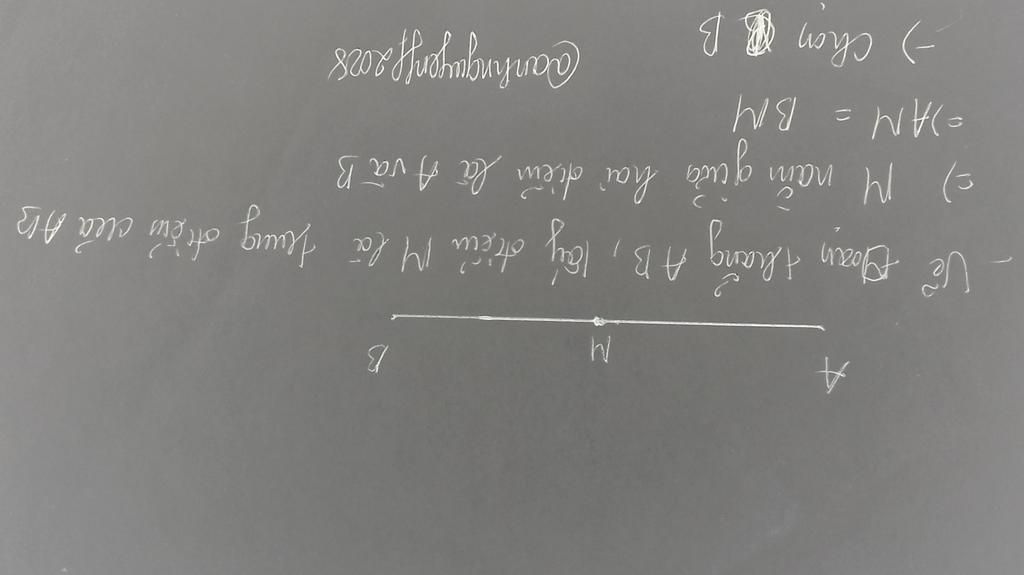 A M B
- Vẽ đoạn thẳng AB, lấy điểm M là trung điểm của AB
=) M nằm giữa hai điểm là A và B
=) AM = BM
@anhnguyenff2028
-) Chọn B